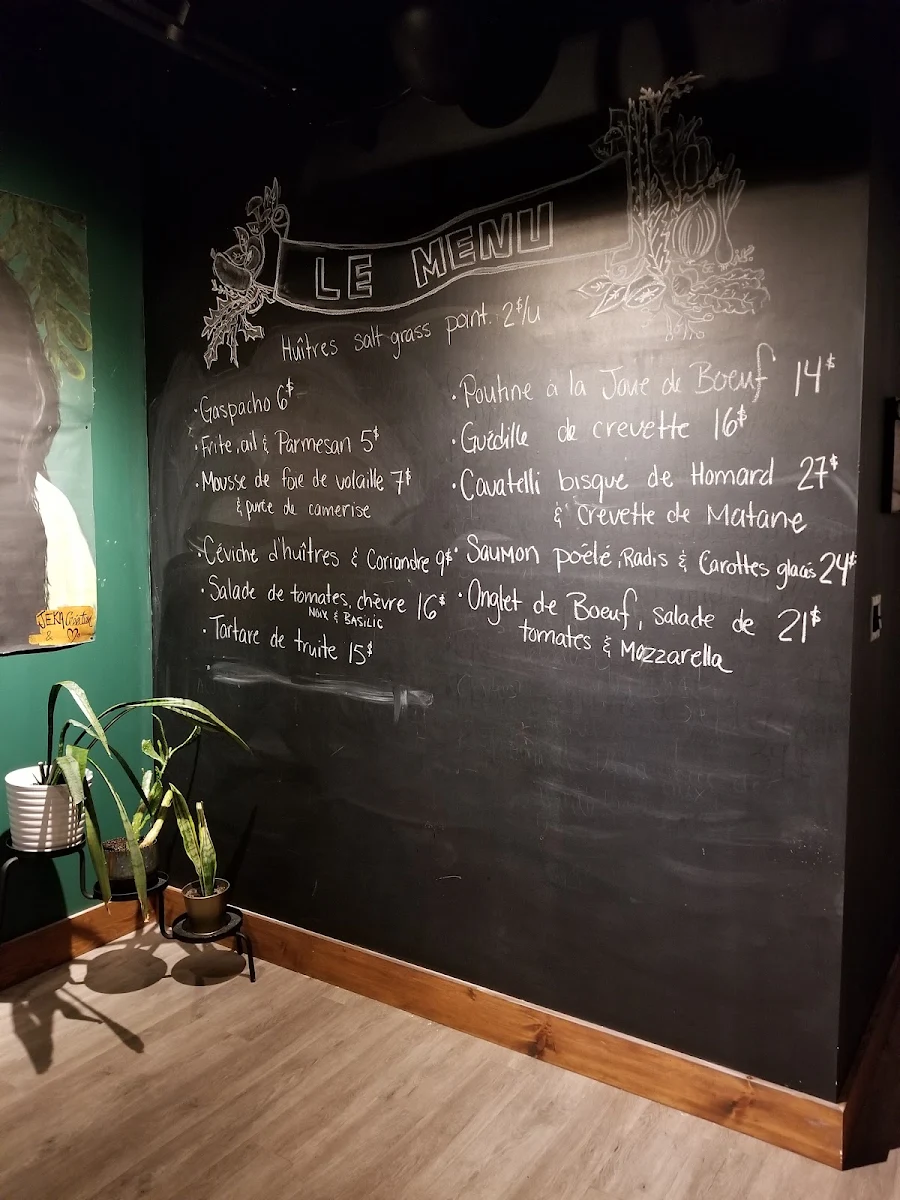 LE MENU
Huîtres salt grass point. 2$/u
· Gaspacho 6$
· Frite, ail & Parmesan 5$
· Mousse de foie de volaille 7$
& puree de camerise
· Céviche d'huîtres & Coriandre 9$
· Salade de tomates, chèvre 16$
Noix & BASILIC
· Tartare de truite 15$
· Poutine à la Joue de Boeuf 14$
· Guédille de crevette 16$
· Cavatelli bisque de Homard 27$
& Crevette de Matane
· Saumon poêlé, Radis & Carottes glacés 24$
· Onglet de Boeuf, salade de 21$
tomates & Mozzarella
JEKA Création
&